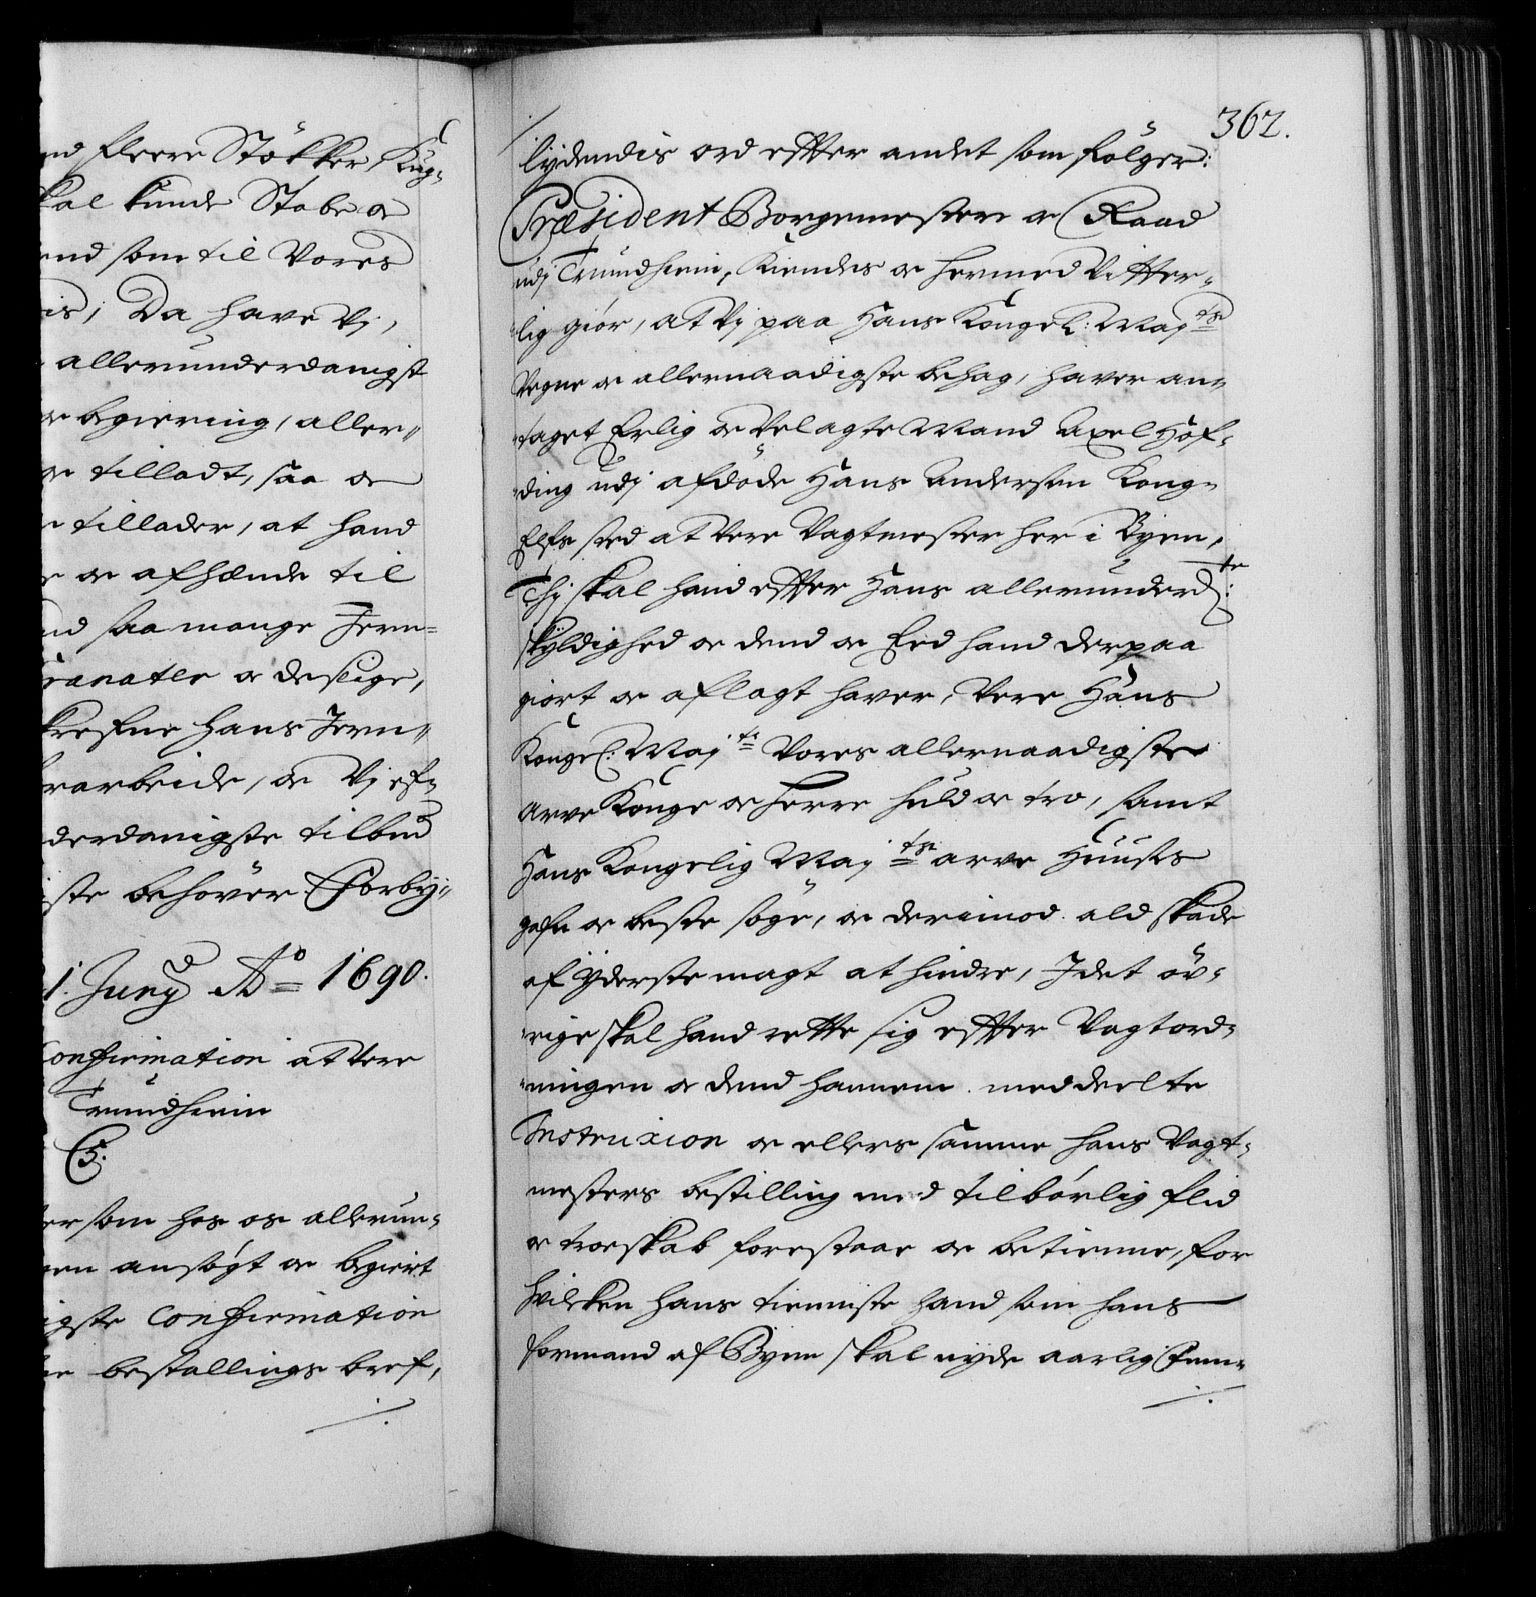 nd fleere Stökker, Kug-
kal kunde Støbe oc
end som til Vores
is, Da have Vj,
allerunderdanigst
oc begiering, aller-
oc tilladt, saa oc
tillader, at hand
oc afhænde til
nd saa mange Jern-
ranater oc deslige,
krefne hans Jern-
rarbeide, oc Vj ef-
derdanigste tilbud
ste behöver Forby-
1. Junij Ao 1690.
Confirmation at Vere
Trundhiem
C5.
er som hos os allerun-
en ansögt oc begiert
igste Confirmation
bestallings bref,
362.
lijdendis ord effter andet som fölger:
Præsident Borgemestere oc Raad
udj Trundhiem, Kiendes oc hermed Vitter-
lig giör, at Vj paa Hans Kongel: Maj ts
Vegne oc allernaadigste behag, haver an-
taget Erlig oc Velagte Mand Axel Höf-
ding udj afdöde Hans Andersen Kong-
Elfs sted at Vere Vagtmester her i Byen,
Thj skal hand effter Hans allerunderd: te
skyldighed oc dend oc Eed hand derpaa
giort oc aflagt haver, Vere Hans
Kongel: Maj ts Vores allernaadigste
arve Konge oc Herre huld oc tro, samt
Hans Kongelig Maj ts arve Huuses
gafn oc beste söge, oc derimod ald skade
af yderste magt at hindre, I det öv-
rige skal hand rette sig effter Vagtord-
ningen oc dend hannem meddeelte
Instruxion oc ellers samme hans Vagt-
mesters bestilling med tilbörlig flid
oc troeskab forestaae oc betienne, for
hvilcken hans tienniste hand som hans
formand af Byen skal nyde aarlig Fem-